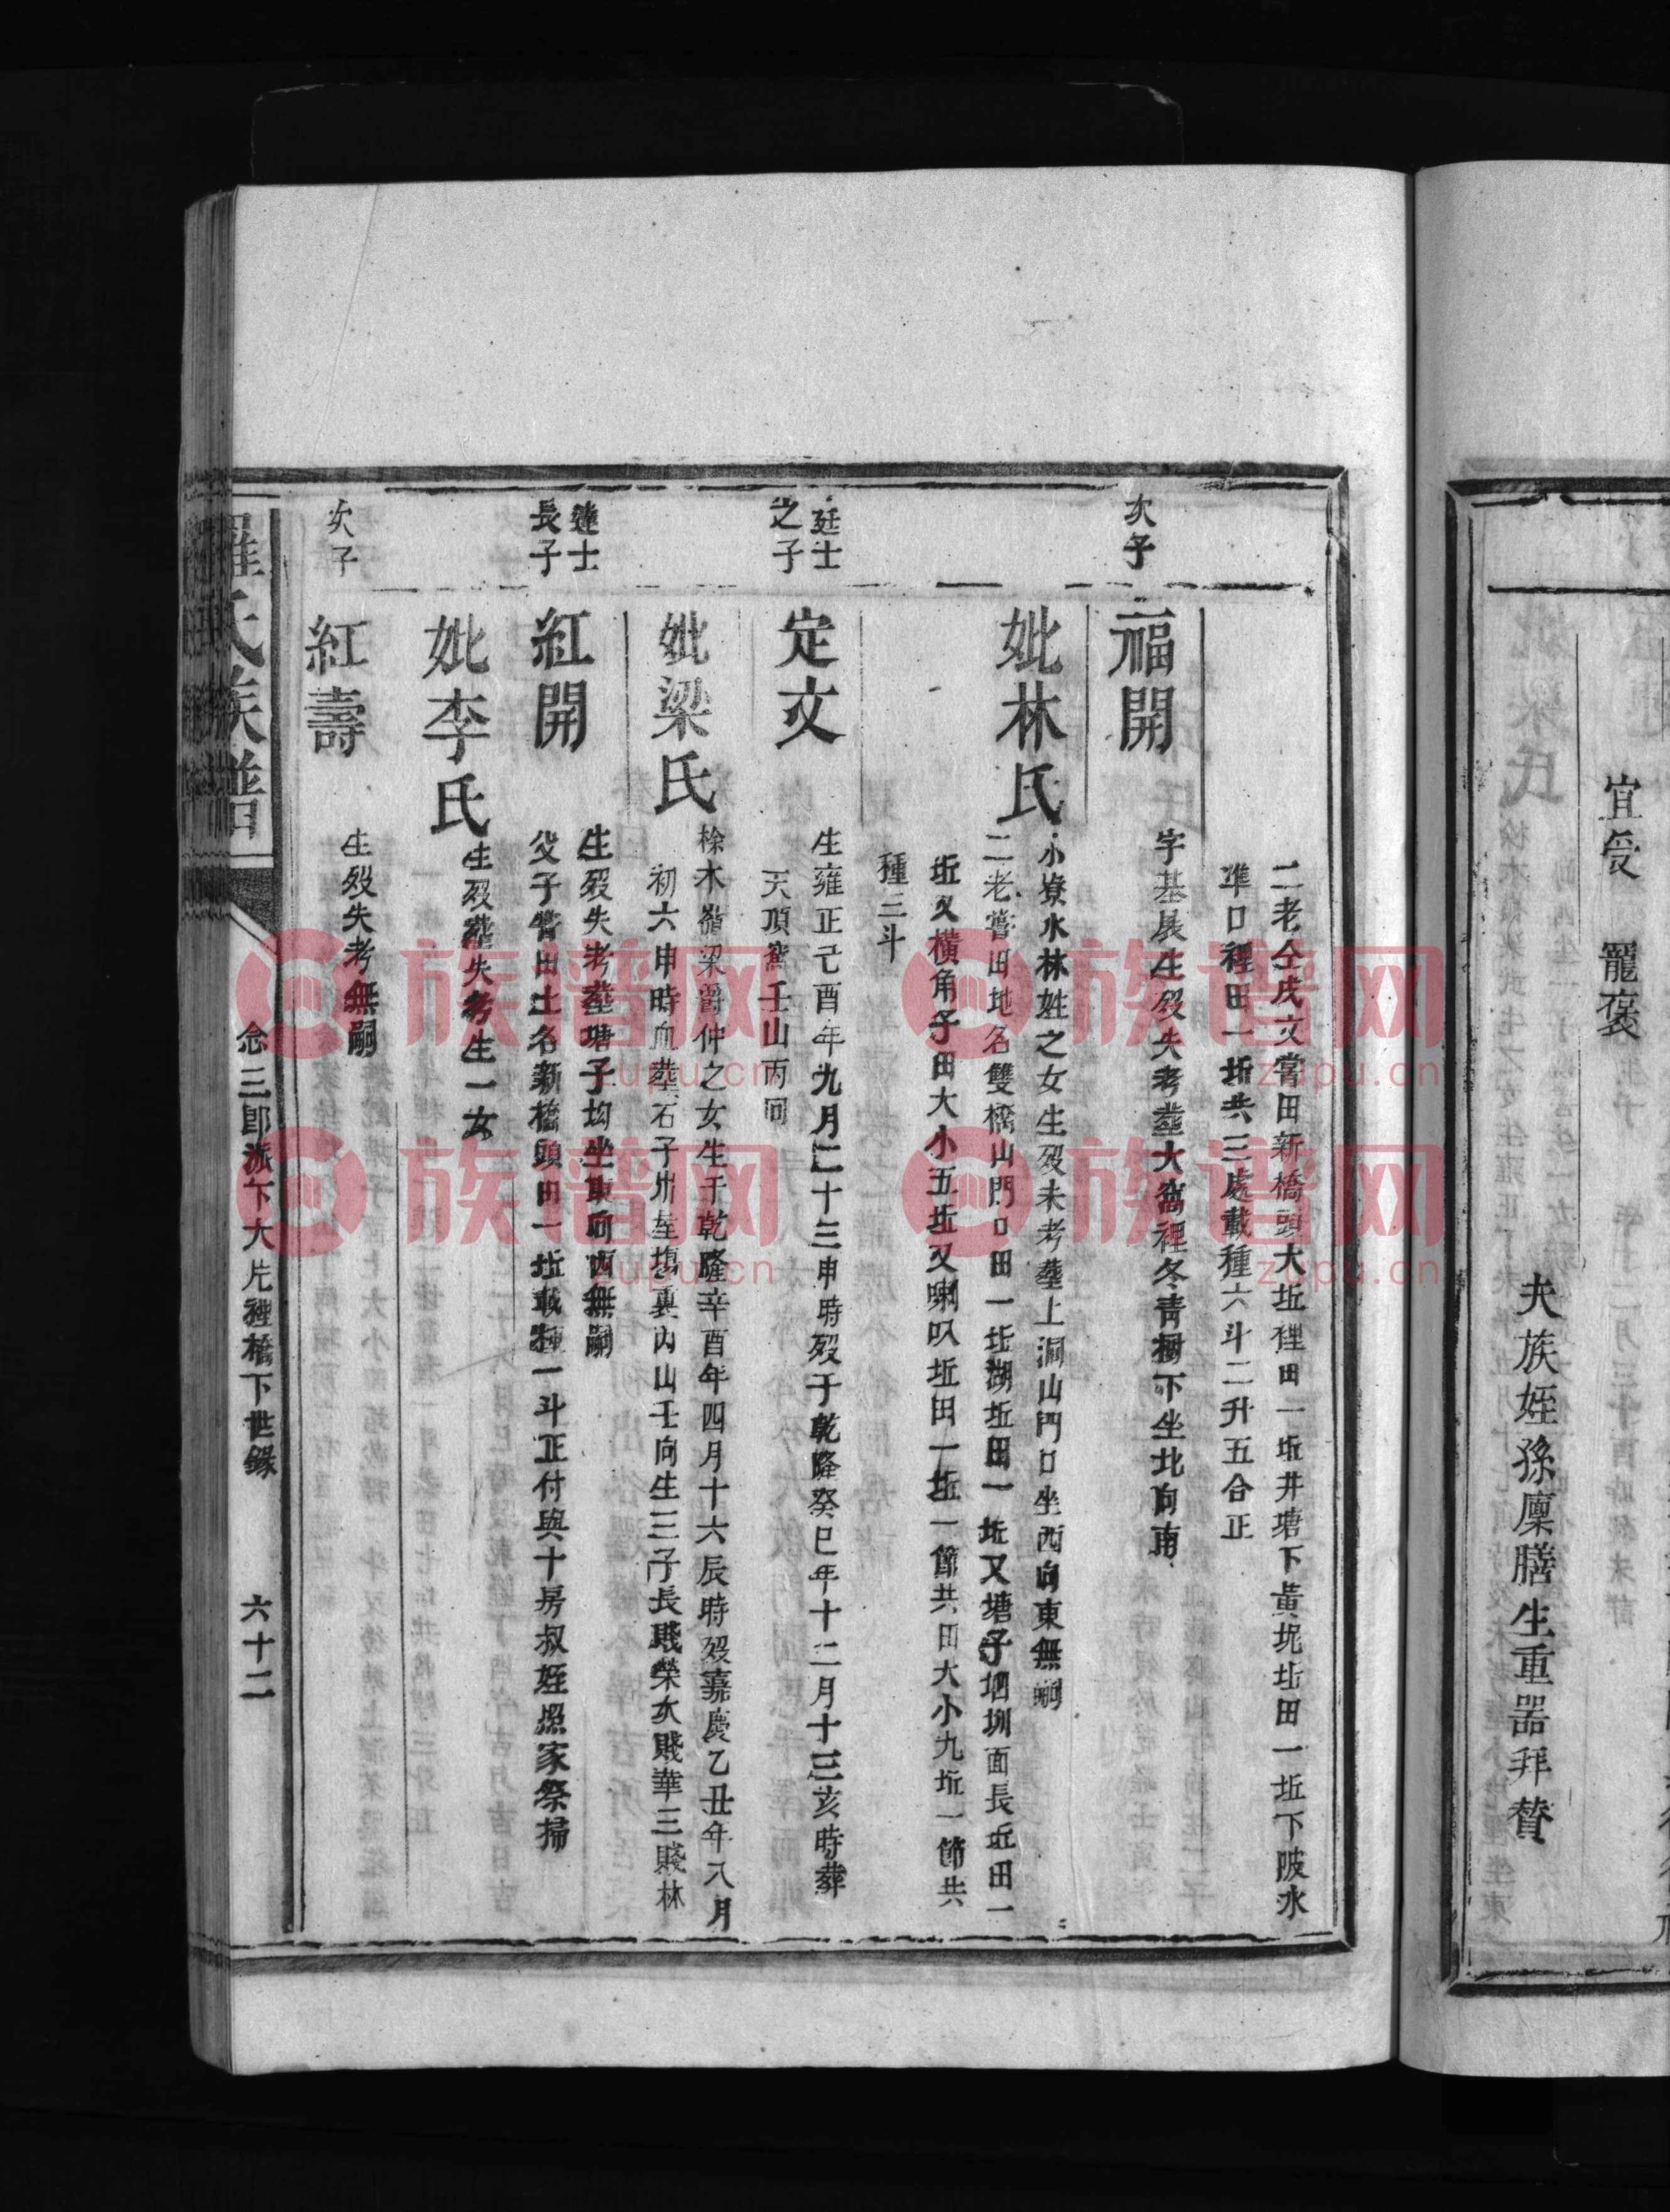 宜受 寵褒
夫族姪孫廩膳生重器拜贊
二老仝戌文嘗田新橋頭大坵裡田一坵井塘下黃坭坵田一坵下陂水
準口裡田一坵共三處載種六斗二升五合正
次子
福開
字基展生歿失考塟大窩裡冬青樹下坐北向南
妣林氏
小寮水林姓之女生歿未考塟上洞山門口坐西向東無嗣
二老嘗田地名雙橋山門口田一坵湖坵田一坵又塘子垇圳面長坵田一
坵又橫角子田大小五坵又喇叭坵田一坵一節共田大小九坵一節共
種三斗
廷士
之子
定文
生雍正己酉年九月二十三申時歿于乾隆癸巳年十二月十三亥時葬
天頂窩壬山丙向
妣梁氏
梁爵仲之女生于乾隆辛酉年四月十六辰時歿嘉慶乙丑年八月
初六申時血塟石子㘵山壬向生三子長賤榮次賤華三賤林
達士
長子
紅開
生歿失考塟塘子坳坐東向西無嗣
父子嘗田土名新橋頭田一坵載種一斗正付與十房叔姪照家祭掃
妣李氏
生歿塟失考生一女
次子
紅壽
生歿失考無嗣
羅氏族譜
念三郎派下大片裡橋下世錄
六十二
族普网
zupu.cn
族普网
zupu.cn
族普网
zupu.cn
族普网
zupu.cn